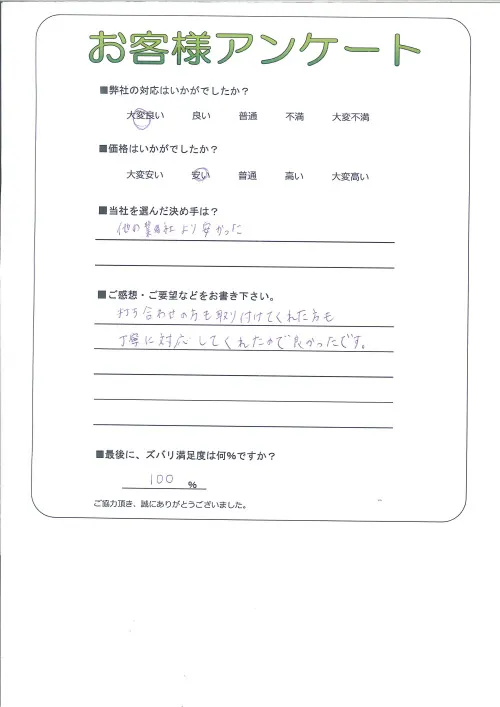 お客様アンケート
■弊社の対応はいかがでしたか？
大変良い 良い 普通 不満 大変不満
■価格はいかがでしたか？
大変安い 安い 普通 高い 大変高い
■当社を選んだ決め手は？
他の業者より安かった
■ご感想・ご要望などをお書き下さい。
打ち合わせの方も取り付けてくれた方も
丁寧に対応してくれたので良かったです。
■最後に、ズバリ満足度は何％ですか？
100 %
ご協力頂き、誠にありがとうございました。